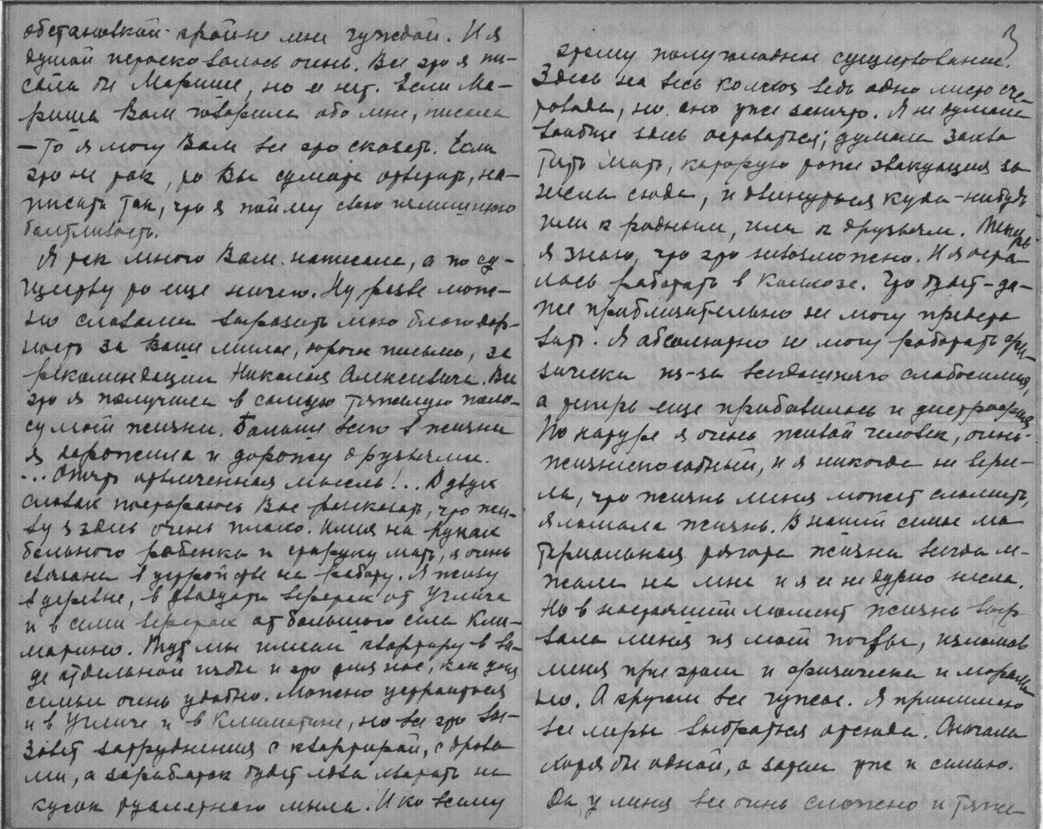 обстановкой крайне мне чуждой. И я
душой тоскую очень. Все это я пи-
сала бы Марише, но ее нет. Если Ма-
риша Вам говорила обо мне, писала
— то я могу Вам все это сказать. Если
это не так, то Вы сумеете ответить, на-
писать так, что я пойму свою излишнюю
болтливость.
Я так много Вам написала, а по су-
ществу то еще ничего. Ну разве мож-
но словами выразить мою благодар-
ность за Ваше милое, теплое письмо, за
рекомендации Николая Алексеевича. Все
это я получила в самую тяжелую поло-
су моей жизни. Больше всего в жизни
я дорожила и дорожу друзьями.
... Опять отвлеченная мысль!.. В двух
словах постараюсь Вам рассказать, что жи-
ву я здесь очень плохо. Имея на руках
больного ребенка и старуху мать, я очень
связана в устройстве на работу. Я живу
в деревне, в двадцати верстах от Углича
и в семи верстах от большого села Кли-
матино. Тут мы имеем квартиру в ви-
де отдельной избы и это для нас, как для
семьи очень удобно. Можно устроиться
и в Угличе и в Климатине, но все это вы-
зовет затруднения с квартирой, с дрова
ми, а заработок будет хватать на
кусок туалетного мыла. И ко всему
3
этому полуголодное существование.
Здесь на весь колхоз ведь одно место сче-
товода, но оно уже занято. Я не думала
вообще здесь оставаться; думала захва
тить мать, которую тоже эвакуация за
несла сюда, и двинуться куда-нибудь
или к родным, или к друзьям. Теперь
я знаю, что это невозможно. И я оста
лась работать в колхозе. Что будет - да-
же приблизительно не могу предста
вить. Я абсолютно не могу работать фи-
зически из-за всегдашнего слабосилия,
а теперь еще прибавилась и дистрофия.
По натуре я очень живой человек, очень
жизнеспособный, и я никогда не вери-
ла, что жизнь меня может сломить,
я ломала жизнь. В нашей семье ма
териальная тягота жизни всегда ле-
жала на мне и я ее не дурно несла.
Но в настоящий момент жизнь выр
вала меня из моей почвы, изломав
меня при этом и физически и мораль
но. А кругом все чужое. Я принимаю
все меры выбраться отсюда. Сначала
хотя бы одной, а затем уже и семью.
Да у меня все очень сложно и тяже-